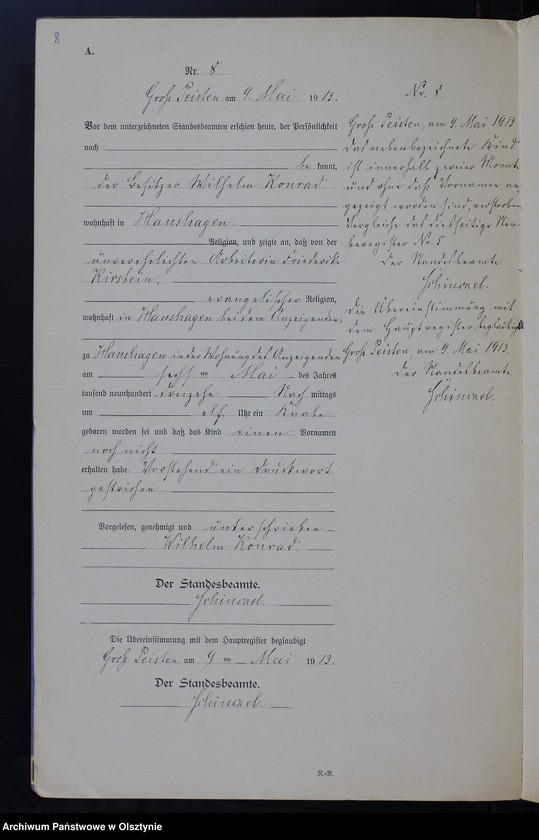 8
A.
Nr. 8
Groß Peisten am 9. Mai 1913.
Vor dem unterzeichneten Standesbeamten erschien heute, der Persönlichkeit
nach
be kannt,
der Besitzer Wilhelm Konrad
wohnhaft in Hanshagen
Religion, und zeigte an, daß von der
unverehelichten Arbeiterin Friederike
Kirstein,
evangelischer Religion,
wohnhaft in Hanshagen bei dem Anzeigenden,
zu Hanshagen in der Wohnung des Anzeigenden
am sechsten Mai des Jahres
tausend neunhundert dreizehn Nach mittags
um elf Uhr ein Knabe
geboren worden sei und daß das Kind einen Vornamen
noch nicht
erhalten habe. Vorstehend ein Druckwort
gestrichen
Vorgelesen, genehmigt und unterschrieben
Wilhelm Konrad
Der Standesbeamte.
Die Übereinstimmung mit dem Hauptregister beglaubigt
Groß Peisten am 9 ten Mai 1913.
Der Standesbeamte.
N.-R.
No. 8
Groß Peisten, am 9. Mai 1913
Das nebenbezeichnete Kind
ist innerhalb zweier Monate
und ohne daß Vornamen an-
gezeigt worden sind, verstorben
Vergleiche das diesseitige Ster-
beregister No. 5
Der Standesbeamte
Die Übereinstimmung mit
dem Hauptregister beglaubigt
Groß Peisten, am 9. Mai 1913.
Der Standesbeamte
Archiwum Państwowe w Olsztynie